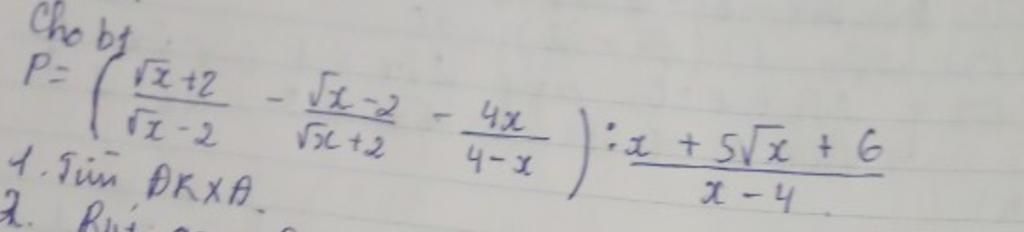 Cho bt
P = ( (√x + 2)/(√x - 2) - (√x - 2)/(√x + 2) - 4x/(4 - x) ) : (x + 5√x + 6)/(x - 4)
1. Tìm ĐKXĐ.
2. Rút